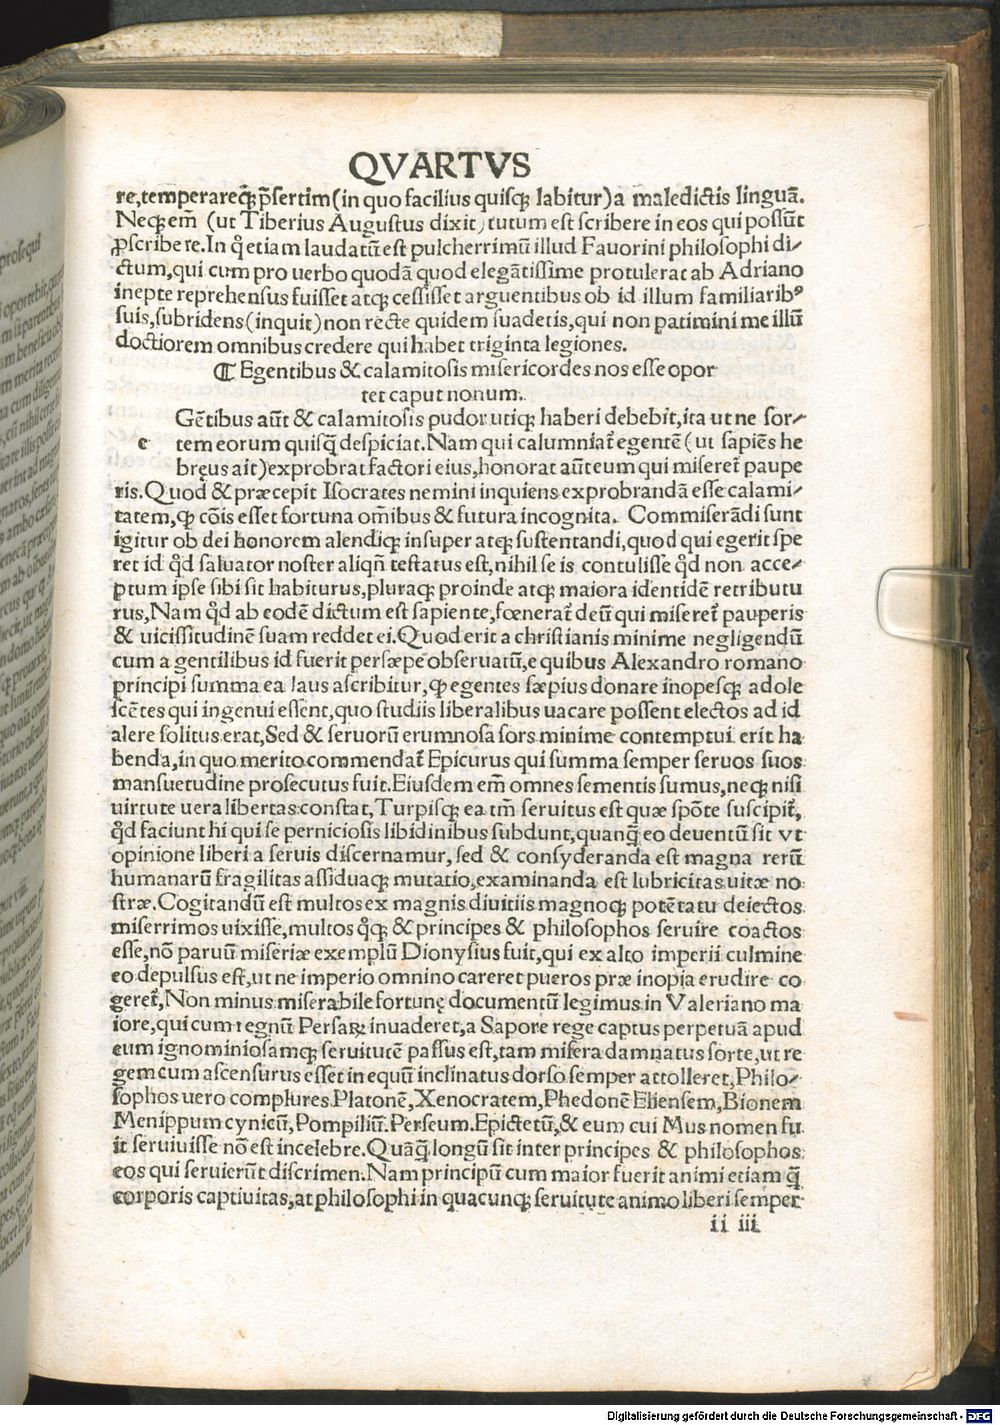 QVARTVS
re,temperareq̃ꝫ p̃sertim(in quo facilius quisqꝫ labitur)a maledictis linguã.
Neqꝫ em̃ (ut Tiberius Augustus dixit,tutum est scribere in eos qui possũt
ꝓscribere.In q̃ etiam laudatũ est pulcherrimũ illud Fauorini philosophi di⸗
ctum,qui cum pro uerbo quodã quod elegãtissime protulerat ab Adriano
inepte reprehensus fuisset atqꝫ cessisset arguentibus ob id illum familiaribꝰ
suis,subridens(inquit)non recte quidem suadetis,qui non patimini me illũ
doctiorem omnibus credere qui habet triginta legiones.
¶ Egentibus & calamitosis misericordes nos esse opor
tet caput nonum.
e Gẽtibus aũt & calamitosis pudor utiqꝫ haberi debebit,ita ut ne sor⸗
tem eorum quisq̃ despiciat.Nam qui calumniat᷑ egentẽ(ut sapiẽs he
bręus ait)exprobrat factori eius,honorat aũt eum qui miseret᷑ paupe
ris.Quod & præcepit Isocrates nemini inquiens exprobrandã esse calami⸗
tatem,ꝙ cõis esset fortuna om̃ibus & futura incognita. Commiserãdi sunt
igitur ob dei honorem alendiqꝫ insuper atqꝫ sustentandi,quod qui egerit spe
ret id q̊d saluator noster aliqñ testatus est,nihil se is contulisse q̊d non acce⸗
ptum ipse sibi sit habiturus,pluraqꝫ proinde atqꝫ maiora identidẽ retributu
rus,Nam q̊d ab eodẽ dictum est sapiente,fœnerat᷑ deũ qui miseret᷑ pauperis
& uicissitudinẽ suam reddet ei.Quod erit a christianis minime negligendũ
cum a gentilibus id fuerit persæpe obseruatũ,e quibus Alexandro romano
principi summa ea laus ascribitur,ꝙ egentes sæpius donare inopesqꝫ adole
scẽtes qui ingenui essent,quo studiis liberalibus uacare possent electos ad id
alere solitus erat,Sed & seruorũ erumnosa sors minime contemptui erit ha
benda,in quo merito commendat᷑ Epicurus qui summa semper seruos suos
mansuetudine prosecutus fuit.Eiusdem em̃ omnes sementis sumus,neqꝫ nisi
uirtute uera libertas constat,Turpisqꝫ ea tm̃ seruitus est quæ spõte suscipit᷑,
q̊d faciunt hi qui se perniciosis libidinibus subdunt,quanq̃ eo deuentũ sit vt
opinione liberi a seruis discernamur, sed & consyderanda est magna rerũ
humanarũ fragilitas assiduaqꝫ mutatio,examinanda est lubricitas uitæ no
stræ.Cogitandũ est multos ex magnis diuitiis magnoqꝫ potẽtatu deiectos
miserrimos uixisse,multos q̊qꝫ & principes & philosophos seruire coactos
esse,nõ paruũ miseriæ exemplũ Dionysius fuit,qui ex alto imperii culmine
eo depulsus est,ut ne imperio omnino careret pueros præ inopia erudire co
geret᷑,Non minus miserabile fortunę documentũ legimus in Valeriano ma
iore,qui cum regnũ Persaꝝ inuaderet,a Sapore rege captus perpetuã apud
eum ignominiosamqꝫ seruitutẽ passus est,tam misera damnatus sorte,ut re
gem cum ascensurus esset in equũ inclinatus dorso semper attolleret,Philo⸗
sophos uero complures Platonẽ,Xenocratem,Phedonẽ Eliensem,Bionem
Menippum cynicũ,Pompiliũ.Perseum.Epictetũ,& eum cui Mus nomen fu
it seruiuisse nõ est incelebre.Quãq̃ longũ sit inter principes & philosophos
eos qui seruierũt discrimen.Nam principũ cum maior fuerit animi etiam q̃
corporis captiuitas,at philosophi in quacunqꝫ seruitute animo liberi semper
ii iii
Digitalisierung gefördert durch die Deutsche Forschungsgemeinschaft - DFG